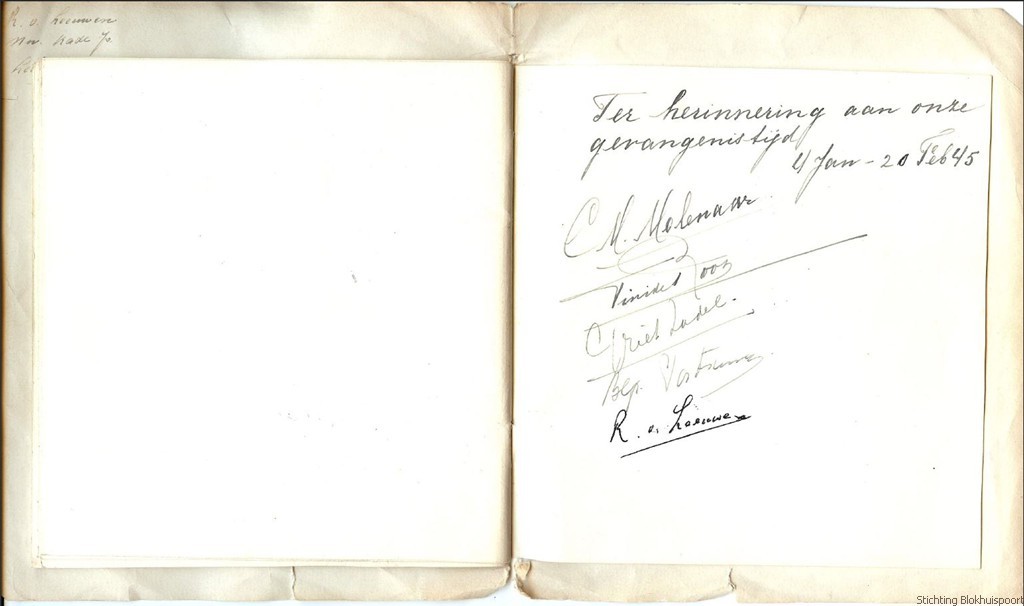 R. v. Leeuwen
Ter herinnering aan onze
gevangenistijd
4 Jan - 20 Feb 45
C M. Molenaar
Roos
Griet Zadel.
Bep
R. v. Leeuwen
Stichting Blokhuispoort